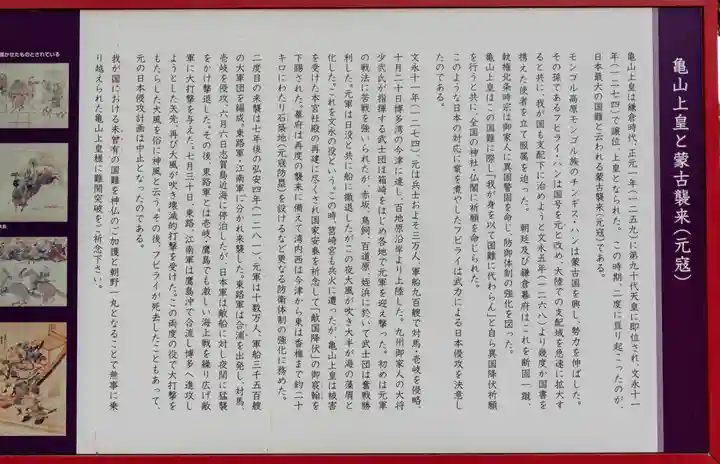 亀山上皇と蒙古襲来(元寇)
亀山上皇は鎌倉時代、正元一年(一二五九)に第九十代天皇に即位され、文永十一
年(一二七四)で譲位、上皇となられた。この時期、二度に亘り起こったのが、
日本最大の国難と云われる蒙古襲来(元寇)である。
モンゴル高原モンゴル族のチンギス・ハンは蒙古国を興し、勢力を伸ばした。
その孫であるフビライ・ハンは国号を元と改め、大陸での支配域を急速に拡大す
ると共に、我が国も支配下に治めようと文永五年(一二六八)より幾度か国書を
携えた使者を立て服属を迫った。朝廷及び鎌倉幕府はこれを断固一蹴、
執権北条時宗は御家人に異国警固を命じ、防御体制の強化を図った。
亀山上皇はこの国難に際し、「我が身を以て国難に代わらん」と自ら異国降伏祈願
を行うと共に、全国の神社・仏閣に祈願を命じられた。
このような日本の対応に業を煮やしたフビライは武力による日本侵攻を決意し
たのである。
文永十一年(一二七四)元は兵士およそ三万人、軍船九百艘で対馬・壱岐を侵略、
十月二十日博多湾の今津に達し、百地原沿岸より上陸した。九州御家人の大将
少弐氏が指揮する武士団は箱崎をはじめ各地で元軍を迎え撃つ。初めは元軍
の戦法に苦戦を強いられたが、赤坂、鳥飼、百道原、姪浜に於いて武士団は奮戦勝
利した。元軍は日没と共に船に撤退したが、この夜大風が吹き大半が海の藻屑と
化した。これを文永の役という。この時、筥崎宮も兵火に遭ったが、亀山上皇は被害
を受けた本宮社殿の再建に尽くされ国家安泰を祈念して「敵国降伏」の御宸翰を
下賜された。幕府は再度の襲来に備えて湾内西は今津から東は香椎まで約二十
キロにわたり石築地(元寇防塁)を設けるなど更なる防衛体制の強化に務めた。
二度目の来襲は七年後の弘安四年(一二八一)、元軍は十数万人、軍船三千五百艘
の大軍団を編成、東路軍・江南軍に分かれ来襲した。東路軍は合浦を出発し、対馬、
壱岐を侵攻、六月六日志賀島近海に停泊したが、日本軍は敵船に対し夜間に猛襲
をかけ撃退した。その後、東路軍とは壱岐、鷹島でも激しい海上戦を繰り広げ敵
軍に大打撃を与えた。七月三十日、東路、江南軍は鷹島沖で合流し博多へ進攻し
ようとした矢先、再び大風が吹き壊滅的打撃を受けた。この両度の役で大打撃を
もたらした大風を俗に神風と云う。その後、フビライが死去したこともあって、
元の日本侵攻計画は中止となったのである。
我が国における未曽有の国難を神仏のご加護と朝野一丸となることで無事に乗
り越えられた亀山上皇様に難関突破をご祈念下さい。
描かせたものとされている